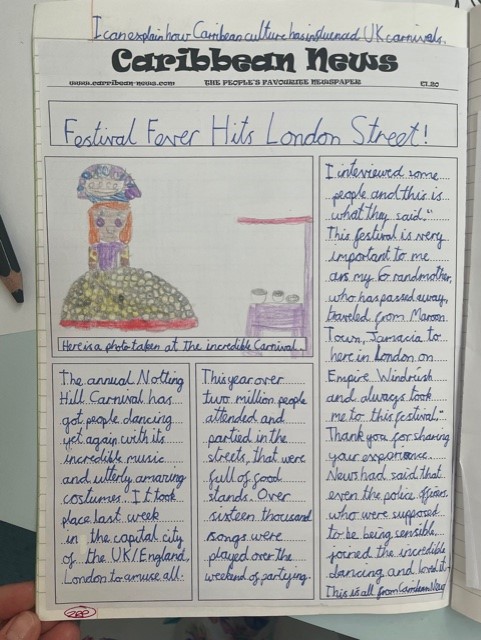 I can explain how Carribean culture has influenced UK carnivals.
Caribbean News
www.carribean-news.com THE PEOPLE'S FAVOURITE NEWSPAPER £1.20
Festival Fever Hits London Street!
Here is a photo taken at the incredible Carnival.
The annual Notting
Hill Carnival has
got people dancing
yet again with its
incredible music
and utterly amazing
costumes. It took
place last week
in the capital city
of the UK/England,
London to amuse all.
This year over
two million people
attended and
partied in the
streets, that were
full of good
stands. Over
sixteen thousand
songs were
played over the
weekend of partying.
I interviewed some
people and this is
what they said."
This festival is very
important to me
as my Grandmother,
who has passed away,
traveled from Maroon
Town, Jamacia to
here in London on
Empire Windrush
and always took
me to this festival."
Thank you for sharing
your experience.
News had said that
even the police officers
who were supposed
to be being sensible,
joined the incredible
dancing and loved it.
This is all from Carribean News